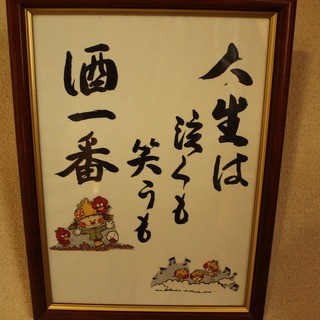 人生は
泣くも
笑うも
酒一番